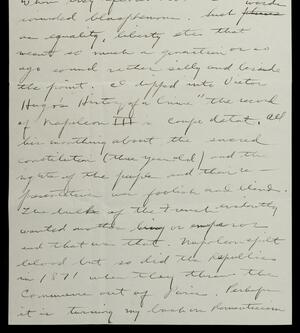 sounded blasphemous. Such phrases
as equality, liberty etc that
meant so much a generation or so
ago sound rather silly and beside
the point. I dipped into Victor
Hugo's History of a Crime" the record
of Napoleon III's coup detat. All
his frothing about the sacred
constitution (three years old) and the
rights of the people and their re-
presentatives was foolish and blind.
The bulk of the French evidently
wanted another king or emperor
and that was that. Napoleon spilt
blood but so did the republic
in 1871 when they threw the
Commune out of Paris. Perhaps
it is turning my back on Romanticism